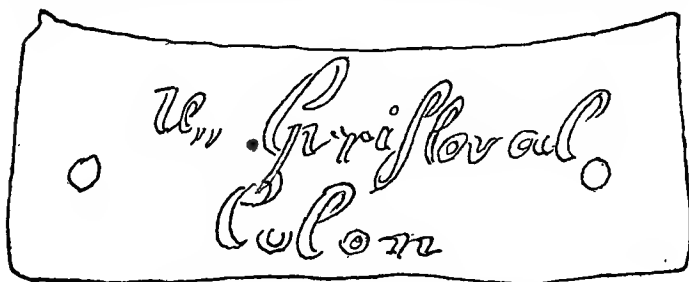 U,, .Cristoval
Colon